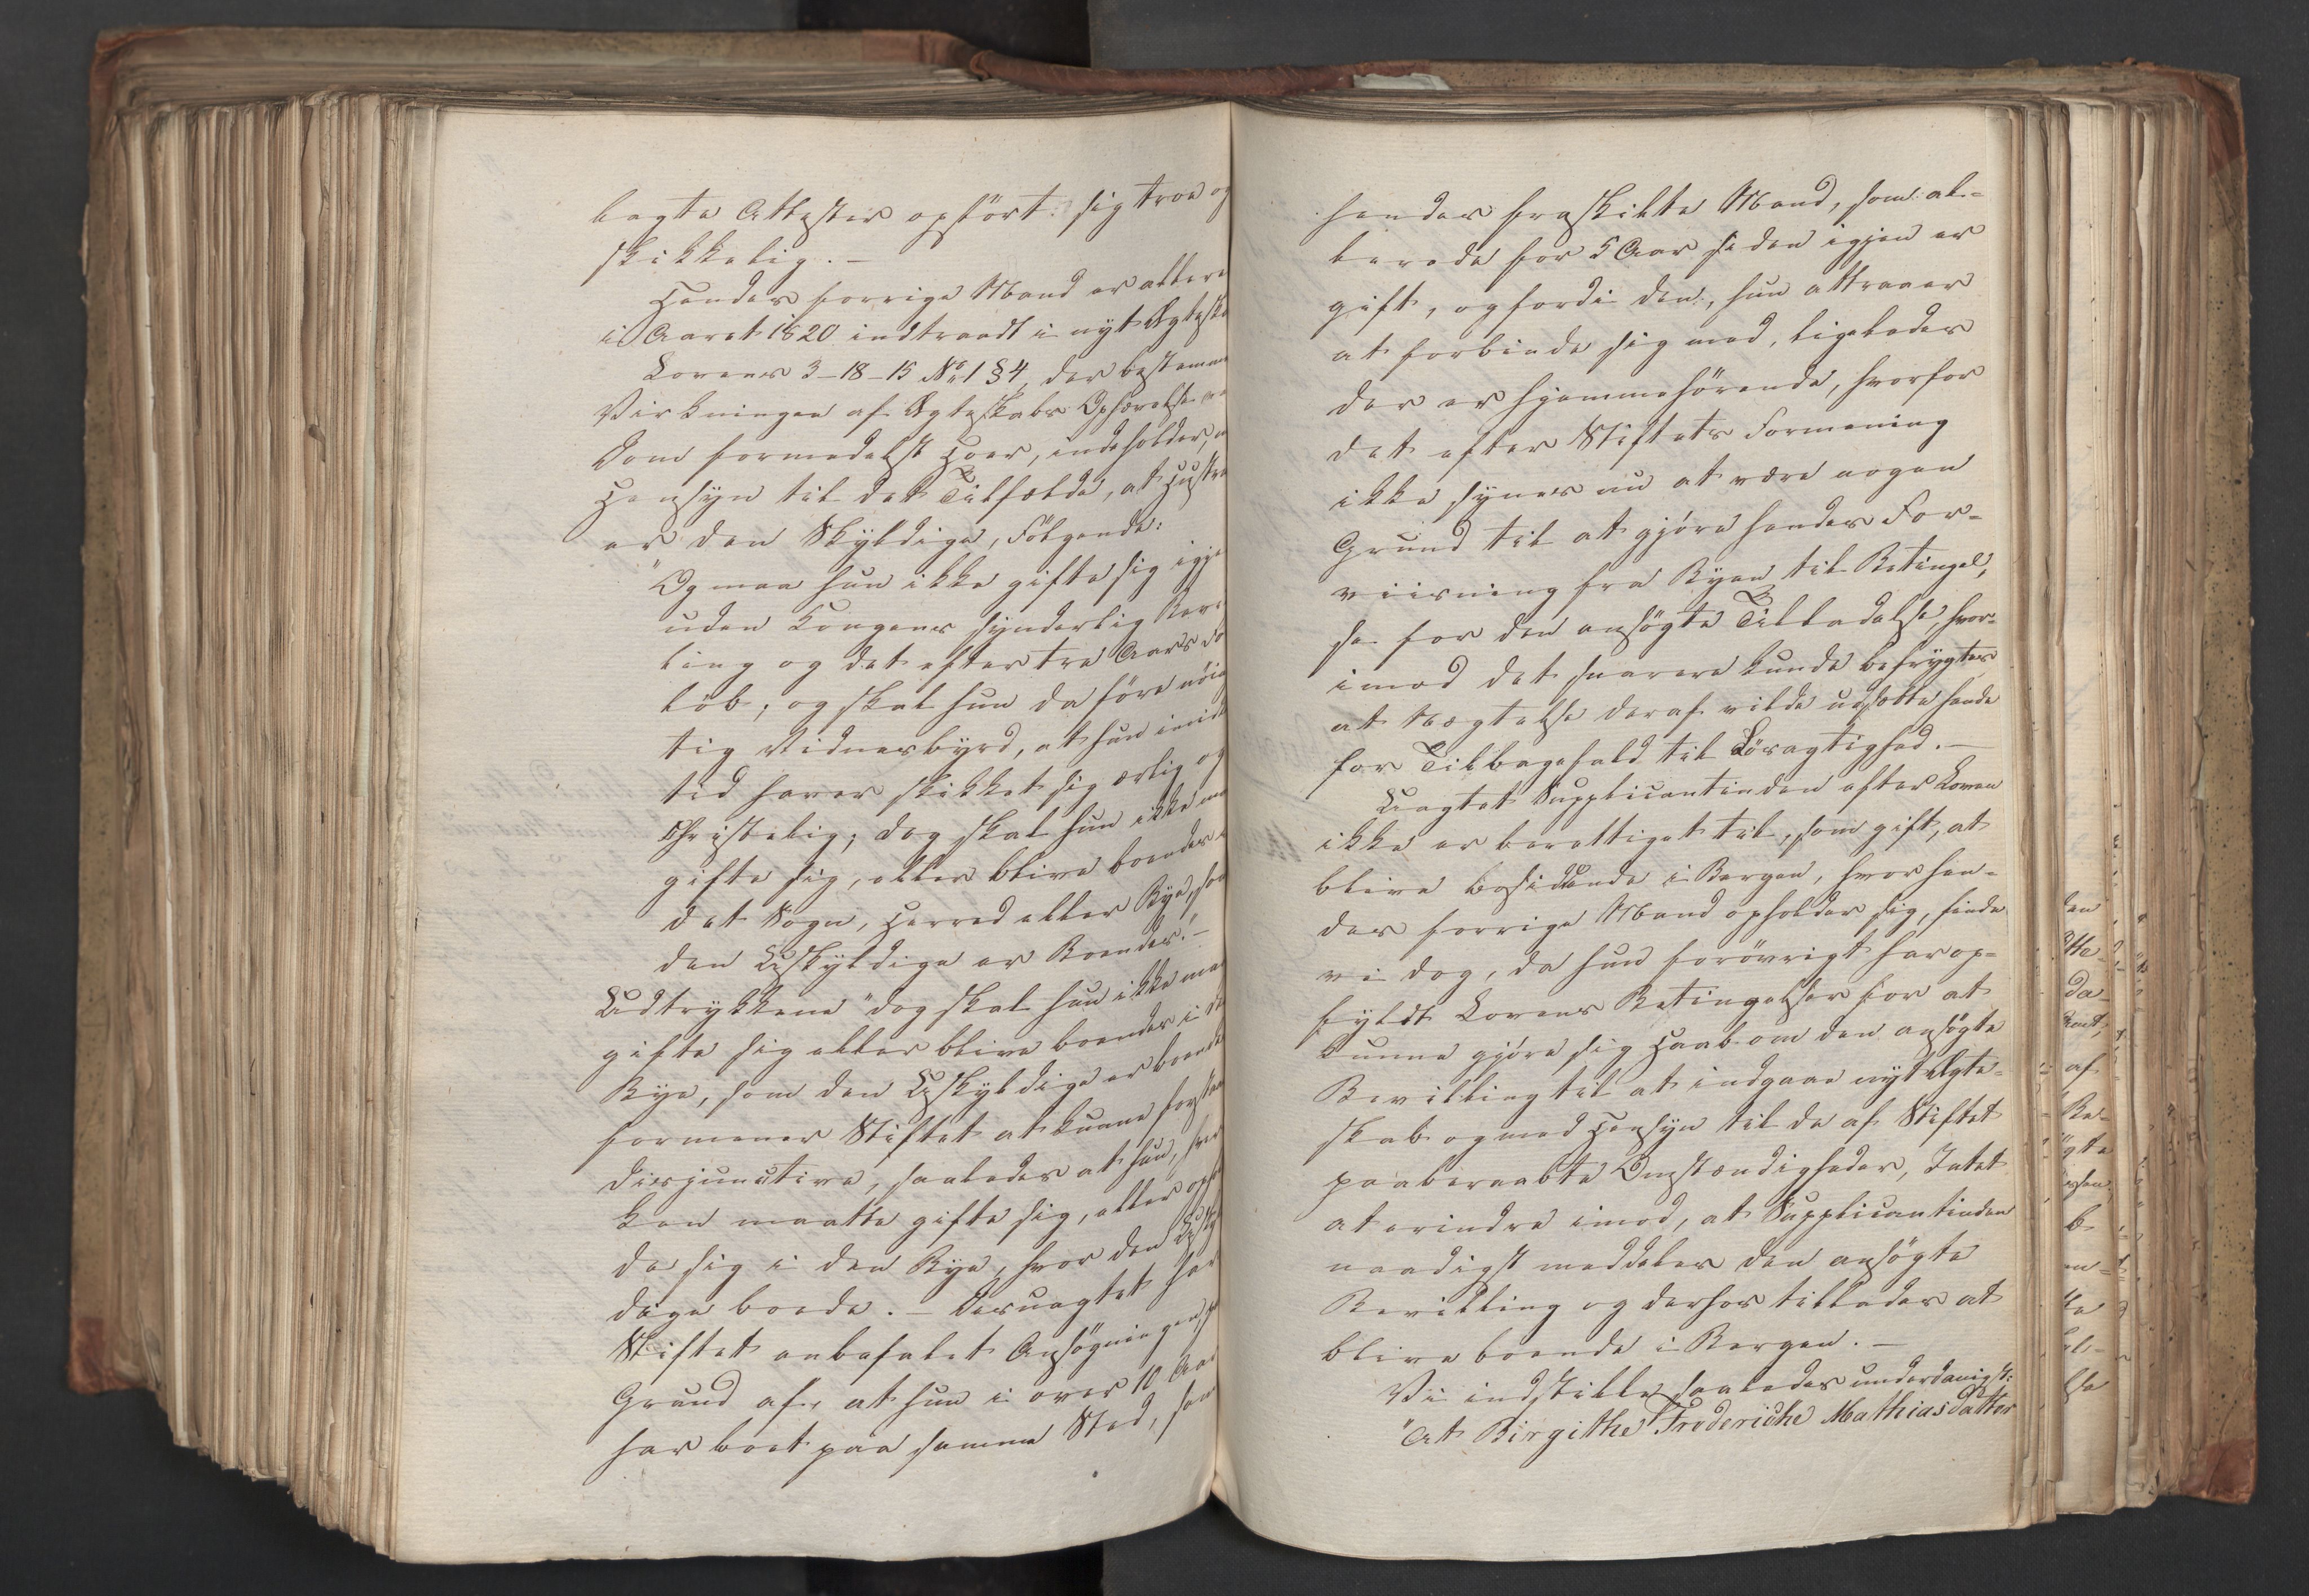 lagte Attester opført sig troe og
skikkelig. –
Hendes forrige Mand er allere
i Aaret 1820 indtraadt i nyt Ægteska
Lovens 3–18–15 No 1 § 4, der bestemme
Virkningen af Ægteskabs Ophævelse
Dom formedelst Hoer, indeholder,
Hensyn til det Tilfælde, at Hustru
er den Skyldige, Følgende:
"Og maa hun ikke gifte sig igje
uden Kongens synderlig Bevi
ling og det efter tre Aars For
løb; og skal hun da føre nøiag
tig Vidnesbyrd, at hun imid
tid haver skikket sig ærlig og
Christelig; dog skal hun ikke maa
gifte sig, eller blive boendes i
det Sogn, Herred eller Bye, som
den Uskyldige er Boendes." –
Udtrykkene "dog skal hun ikke maa
gifte sig eller blive boendes i d
Bye, som den Uskyldige er boende
formener Stiftet at kunne forstaa
disjunctive, saaledes at hun, hver
ken maatte gifte sig, eller ophol
de sig i den Bye, hvor den Uskyl
dige boede. – Desuagtet har
Stiftet anbefalet Ansøgningen, p
Grund af, at hun i over 10 Aar
har boet paa samme Sted, som
hendes fraskilte Mand, som al-
lerede for 5 Aar siden igjen er
gift, og fordi den, hun attraaer
at forbinde sig med, ligeledes
der er hjemmehørende, hvorfor
det efter Stiftets Formening
ikke synes nu at være nogen
Grund til at gjøre hendes For-
viisning fra Byen til Betingel,
se for den ansøgte Tilladelse, hvor-
imod det snarere kunde befrygtes
at Nægtelse deraf vilde udsætte hende
for Tilbagefald til Løsagtighed. –
Uagtet Supplicantinden efter Loven
ikke er berettiget til, som gift, at
blive besiddende i Bergen, hvor hen-
des forrige Mand opholder sig, finde
vi dog, da hun forøvrigt har op-
fyldt Lovens Betingelser for at
kunne gjøre sig Haab om den ansøgte
Bevilling til at indgaae nyt Ægte-
skab og med Hensyn til de af Stiftet
paaberaabte Omstændigheder, Intet
at erindre imod, at Supplicantinden
naadigst meddeles den ansøgte
Bevilling og derhos tillades at
blive boende i Bergen. –
Vi indstille saaledes underdanigst:
"At Birgithe Frederiche Mathiasdatter